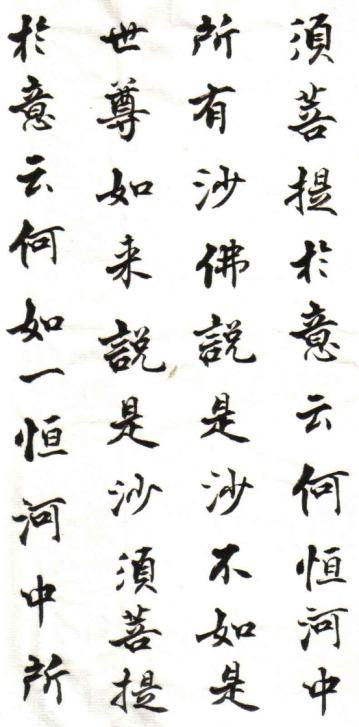 須菩提於意云何恒河中
所有沙佛說是沙不如是
世尊如来說是沙須菩提
於意云何如一恒河中所